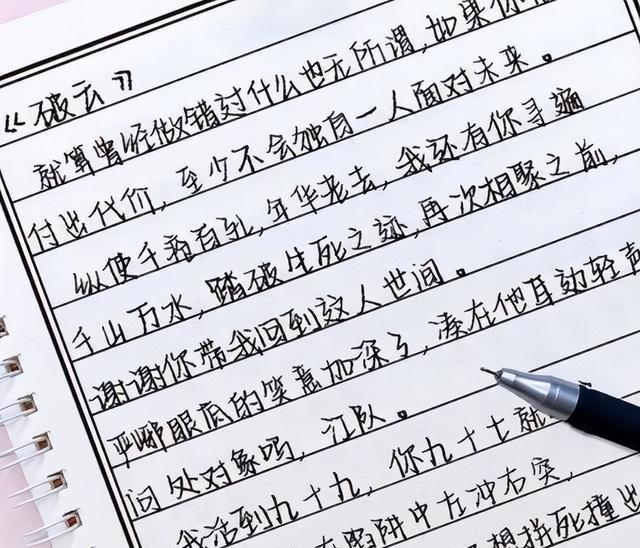 《破云》
就算曾经做错过什么也无所谓,如果你
付出代价,至少不会独自一人面对未来。
纵使千疮百孔,年华老去,我还有你寻遍
千山万水,踏破生死之迹,再次相聚之前,
谢谢你带我回到这人世间。
眼底的笑意加深了,凑在他耳边轻声
问处对象吗,江队。
我活到九十九,你九十七就
在陷阱中左冲右突,
想拼死撞出